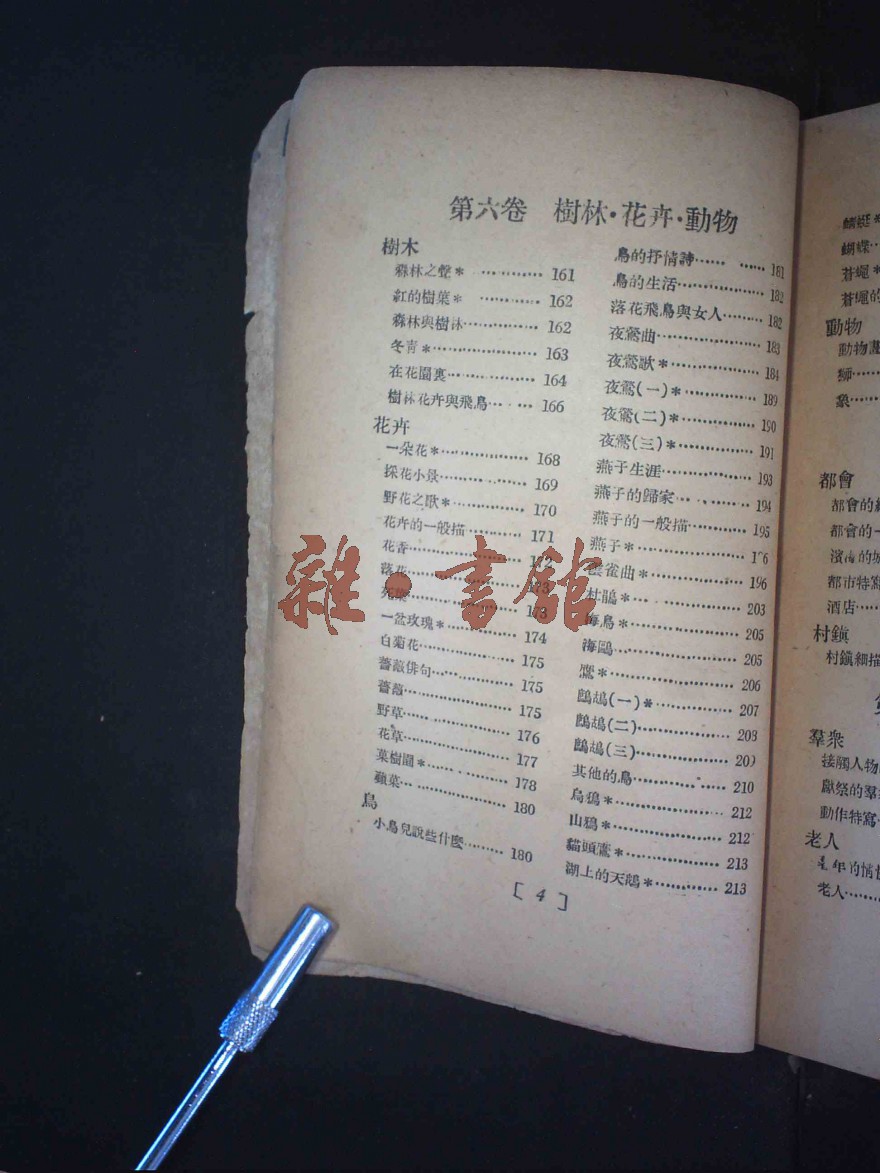 第六卷 樹林·花卉·動物
樹木
森林之聲＊ ………… 161
紅的樹葉＊ ………… 162
森林與樹林………… 162
冬青＊………… 163
在花園裏………… 164
樹林花卉與飛鳥………… 166
花卉
一朵花＊………… 168
採花小景………… 169
野花之歌＊………… 170
花卉的一般描………… 171
花香………… 172
落花………… 173
………… 173
一盆玫瑰＊………… 174
白菊花………… 175
薔薇俳句………… 175
薔薇………… 175
野草………… 176
花草………… 177
菓樹園＊………… 178
蘋菓………… 180
鳥
小鳥兒說些什麼………… 180
鳥的抒情詩………… 181
鳥的生活………… 182
落花飛鳥與女人………… 182
夜鶯曲………… 183
夜鶯歌＊………… 184
夜鶯(一)＊………… 189
夜鶯(二)＊………… 190
夜鶯(三)＊………… 191
燕子生涯………… 193
燕子的歸家………… 194
燕子的一般描………… 195
燕子＊………… 1 6
雲雀曲＊………… 196
杜鵑＊………… 203
海鳥＊………… 205
海鷗………… 205
鷹＊………… 206
鷓鴣(一)＊………… 207
鷓鴣(二)………… 208
鷓鴣(三)………… 20
其他的鳥………… 210
烏鴉＊………… 212
山鴉＊………… 212
貓頭鷹＊………… 213
湖上的天鵝＊………… 213
[ 4 ]
蜻蜓＊
蝴蝶
蒼蠅＊
蒼蠅的
動物
動物
獅…………
象…………
都會
都會的
都會的一
濱海的城
都市特寫
酒店…………
村鎮
村鎮細描
羣衆
接觸人物
獻祭的羣
動作特寫
老人
老年的情
老人…………
雜·書館